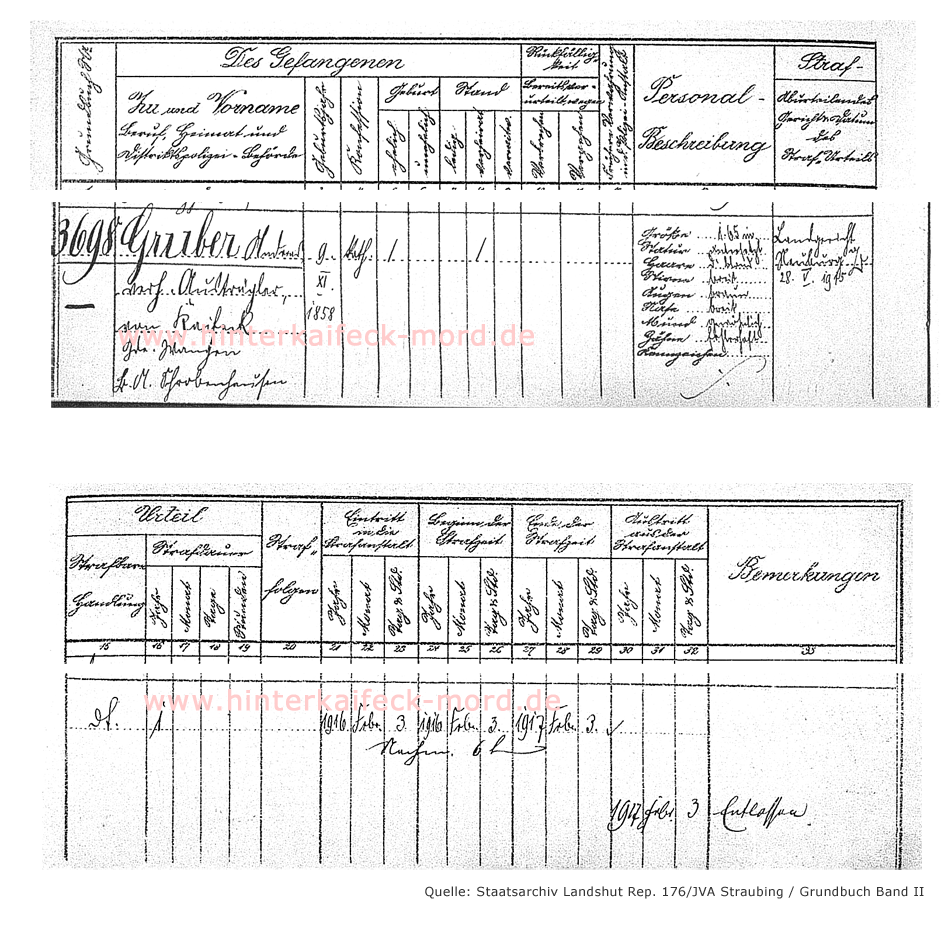 Grundbuch Nr
Des Gefangenen
Zu und Vorname
Beruf, Heimat und
Distriktspolizei-Behörde
Geburtsjahr
Konfession
Geburt
ehelich
unehelich
Stand
ledig
verheirat.
verwitw.
Rückfälligkeit
Bereits vorverurteilt wegen
Verbrechen
Vergehen
Personal-
Beschreibung
Straf-
Aburteilendes
Gericht u. Datum
des
Straf-Urteils
3698 Gruber, Andreas
verh. Austrägler,
von Kaifeck
Gde. Wangen
B.A. Schrobenhausen
9.
XI.
1858
kath.
1
1
Größe 1.65 m
Statur untersetzt
Haare
Stirne breit
Augen braun
Nase breit
Mund gewöhnlich
Zähne fehlerhaft
Kennzeichen
Landgericht
Neuburg a/D.
28. V. 1915
www.hinterkaifeck-mord.de
Urteil
Strafbare
Handlung
Strafdauer
Jahr
Monat
Tage
Stunden
Straf-
folgen
Eintritt
in die
Strafanstalt
Jahr
Monat
Tag & Std
Beginn der
Strafzeit
Jahr
Monat
Tag & Std
Ende der
Strafzeit
Jahr
Monat
Tag & Std
Austritt
aus der
Strafanstalt
Jahr
Monat
Tag & Std
Bemerkungen
15 16 17 18 19 20 21 22 23 24 25 26 27 28 29 30 31 32 33
www.hinterkaifeck-mord.de
1 1916 Febr. 3. 1916 Febr. 3. 1917 Febr. 3.
Nachm. 6 h
1917 Febr. 3 Entlassen.
Quelle: Staatsarchiv Landshut Rep. 176/JVA Straubing / Grundbuch Band II